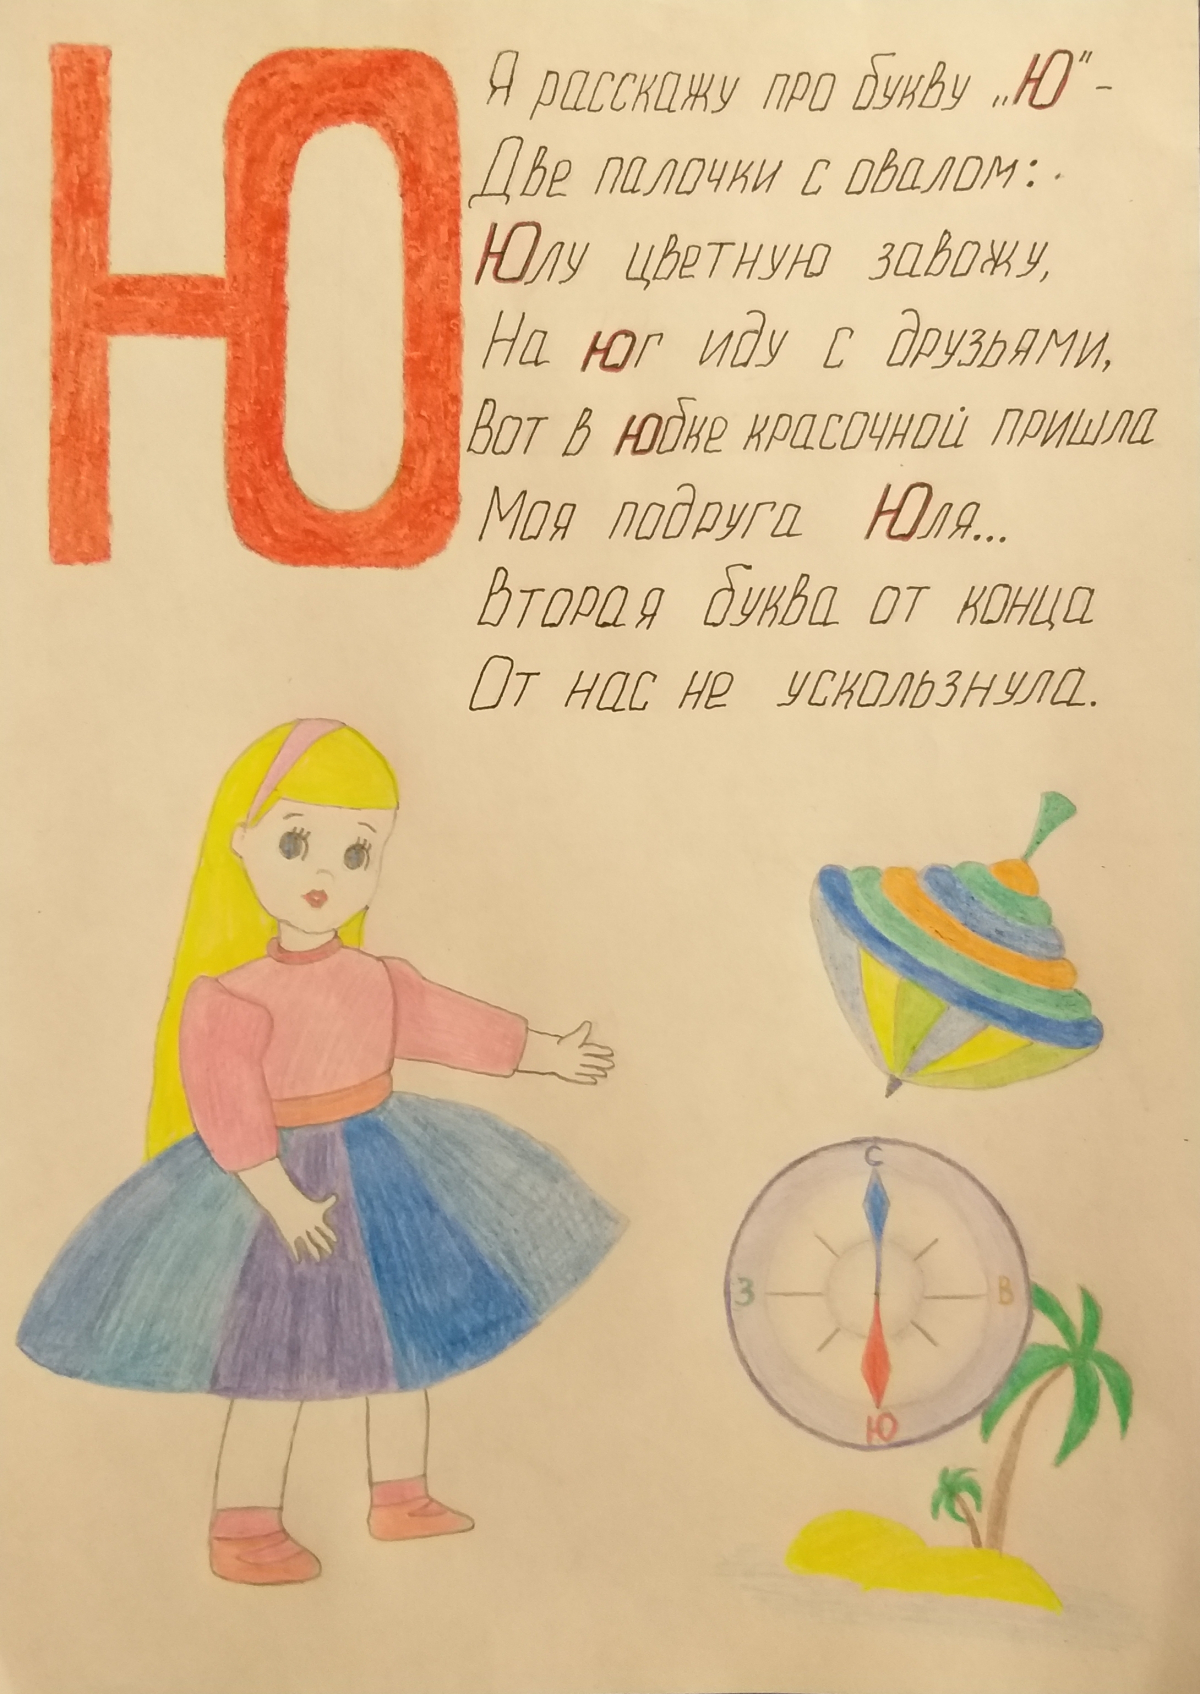 Ю
Я расскажу про букву „Ю“ -
Две палочки с овалом:
Юлу цветную завожу,
На юг иду с друзьями,
Вот в юбке красочной пришла
Моя подруга Юля...
Вторая буква от конца
От нас не ускользнула.
С
З В
Ю